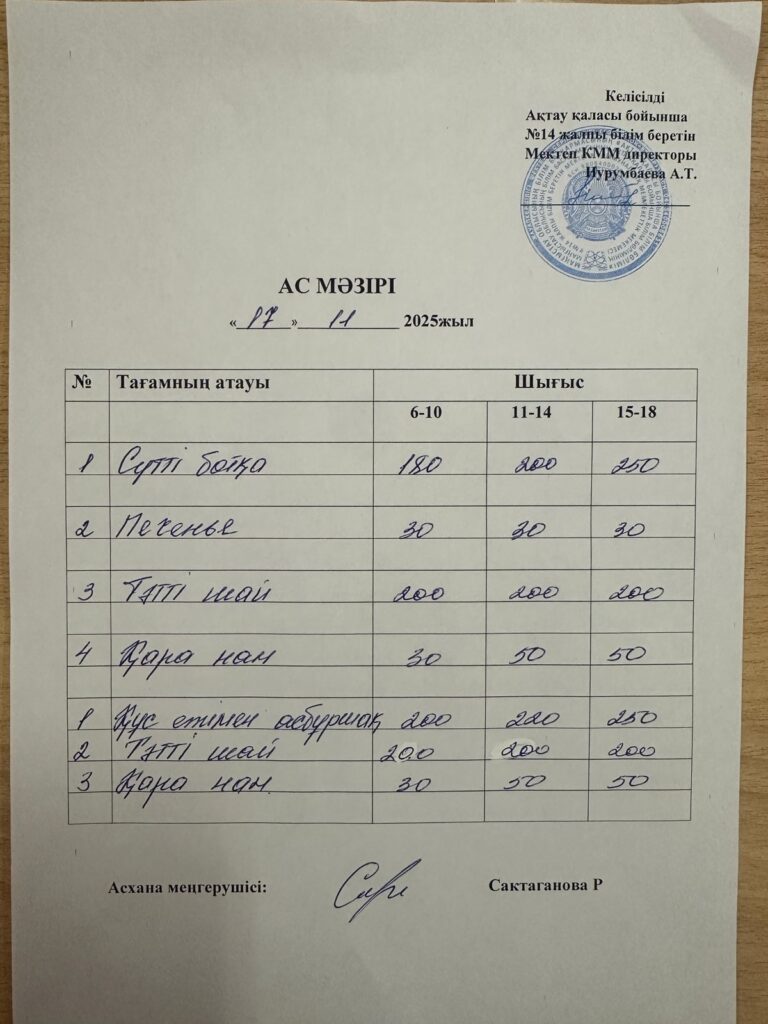 Келісілді
Ақтау қаласы бойынша
№14 жалпы білім беретін
Мектеп КММ директоры
Нурумбаева А.Т.
АС МӘЗІРІ
«17» 11 2025жыл
№ Тағамның атауы Шығыс
6-10 11-14 15-18
1 Сүтті ботқа 180 200 250
2 Печенье 30 30 30
3 Тәтті шай 200 200 200
4 Қара нан 30 50 50
1 Құс етімен асбұршақ 200 220 250
2 Тәтті шай 200 200 200
3 Қара нан 30 50 50
Асхана меңгерушісі: Сактаганова Р